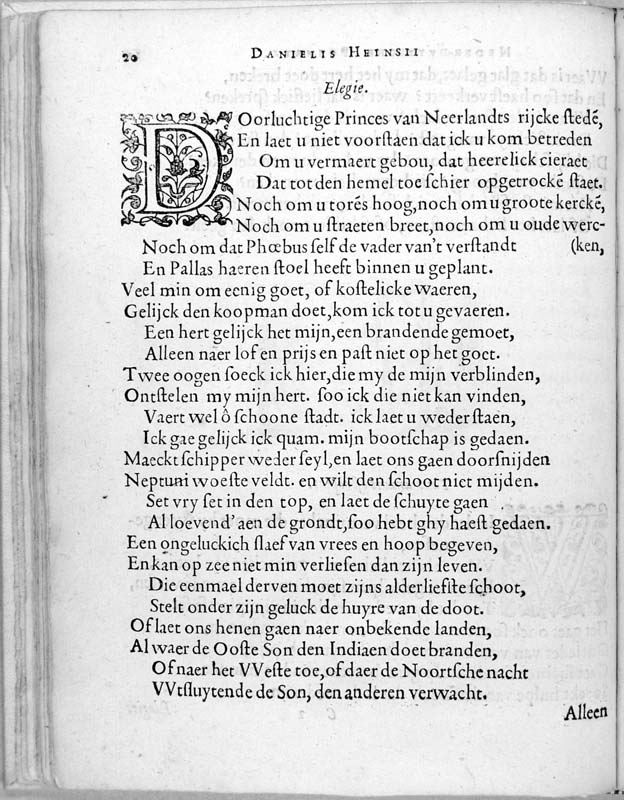 20
DANIELIS HEINSII
Elegie.
DOorluchtige Princes van Neerlandts rijcke ſtedē,
En laet u niet voorſtaen dat ick u kom betreden
Om u vermaert gebou, dat heerelick cieraet
Dat tot den hemel toe ſchier opgetrockē ſtaet.
Noch om u torēs hoog, noch om u groote kerckē,
Noch om u ſtraeten breet, noch om u oude werc-
Noch om dat Phœbus ſelf de vader van't verſtandt (ken,
En Pallas haeren ſtoel heeft binnen u geplant.
Veel min om eenig goet, of koſtelicke waeren,
Gelijck den koopman doet, kom ick tot u gevaeren.
Een hert gelijck het mijn, een brandende gemoet,
Alleen naer lof en prijs en paſt niet op het goet.
Twee oogen ſoeck ick hier, die my de mijn verblinden,
Ontſtelen my mijn hert. ſoo ick die niet kan vinden,
Vaert wel ô ſchoone ſtadt. ick laet u weder ſtaen,
Ick gae gelijck ick quam. mijn bootſchap is gedaen.
Maeckt ſchipper weder ſeyl, en laet ons gaen doorſnijden
Neptuni woeſte veldt. en wilt den ſchoot niet mijden.
Set vry ſet in den top, en laet de ſchuyte gaen
Al loevend' aen de grondt, ſoo hebt ghy haeſt gedaen.
Een ongeluckich ſlaef van vrees en hoop begeven,
En kan op zee niet min verlieſen dan zijn leven.
Die eenmael derven moet zijns alderliefſte ſchoot,
Stelt onder zijn geluck de huyre van de doot.
Of laet ons henen gaen naer onbekende landen,
Al waer de Ooſte Son den Indiaen doet branden,
Of naer het VVeſte toe, of daer de Noortſche nacht
VVtſluytende de Son, den anderen verwacht.
Alleen